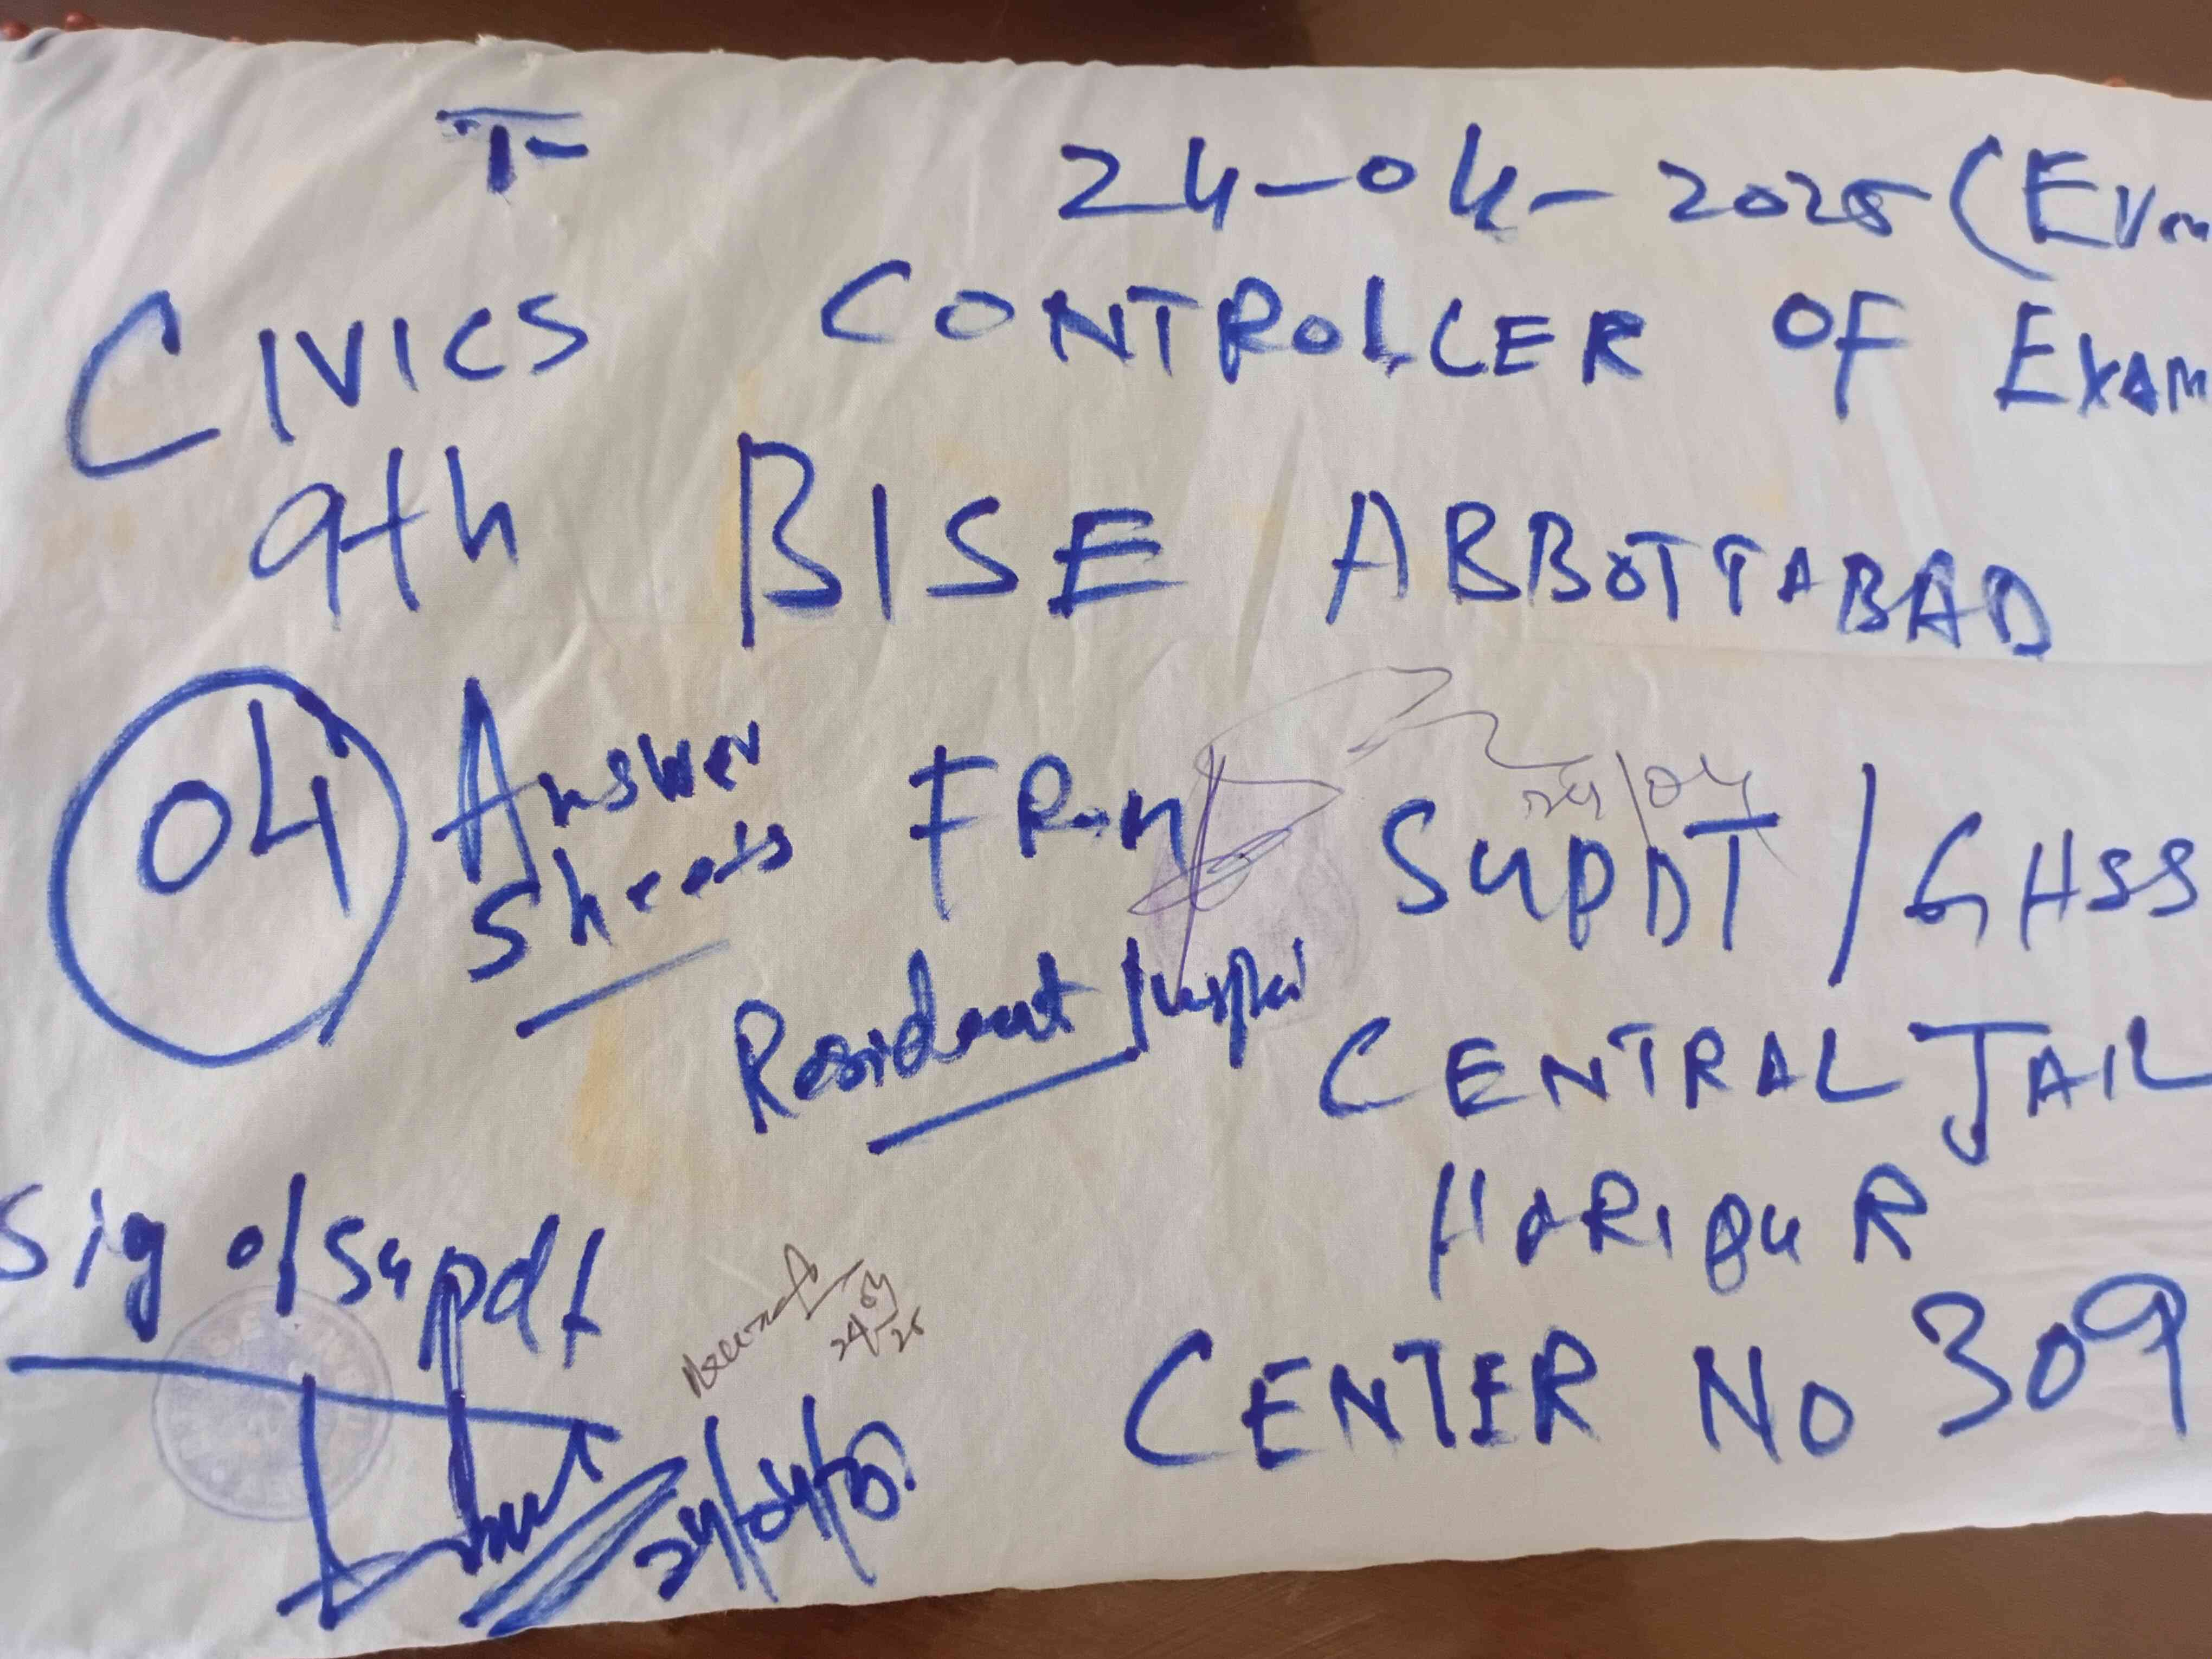 T- 24-04-2025 (Evn
CIVICS CONTROLLER OF EXAM
9th BISE ABBOTTABAD
04 Answer Sheets FRom SUPDT / GHSS
24/04
Resident
CENTRAL JAIL
HARIPUR
Sig of Supdt
24/04/25
CENTER NO 309
24/04/25